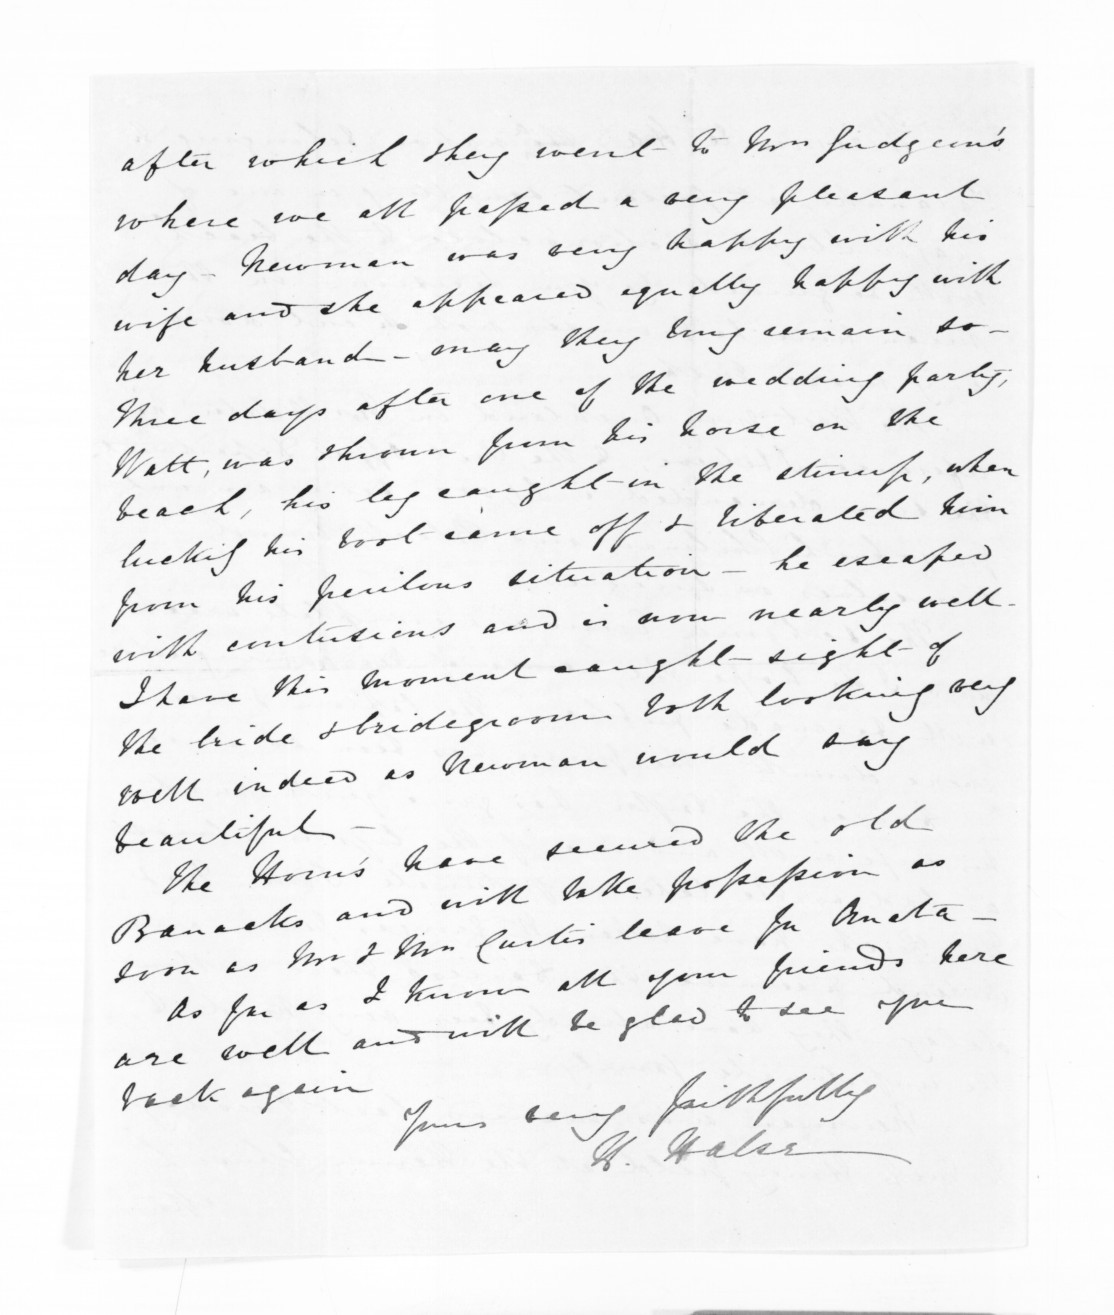 after which they went to Mrs Gudgeon's
where we all passed a very pleasant
day - Newman was very happy with his
wife and she appeared equally happy with
her husband - may they long remain so -
Three days after one of the wedding party,
Watt, was thrown from his horse on the
beach, his leg caught in the stirrup, when
luckily his boot came off & liberated him
from his perilous situation - he escaped
with contusions and is now nearly well -
I have this moment caught sight of
the bride & bridegroom both looking very
well indeed as Newman would say
beautiful -
The Horns have secured the old
Barracks and will take possession as
soon as Mr & Mrs Curtis leave for Omata -
As far as I know all your friends here
are well and will be glad to see you
back again
Yours very faithfully
H. Halse